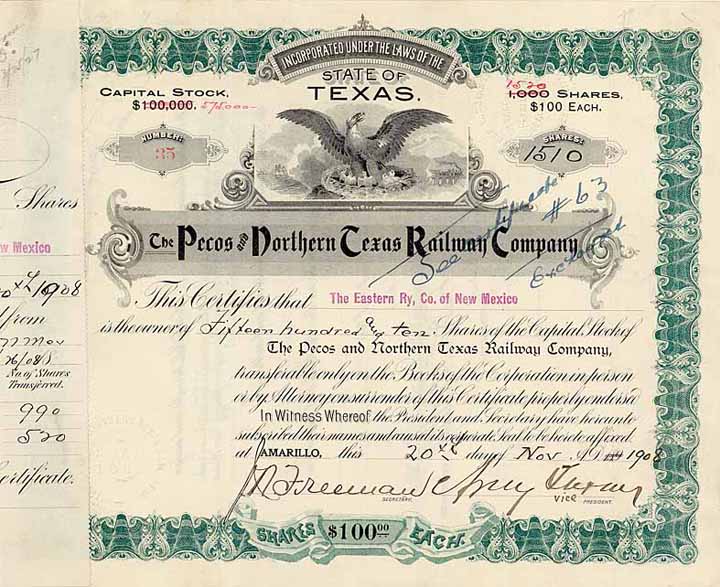 INCORPORATED UNDER THE LAWS OF THE
STATE OF
TEXAS.
CAPITAL STOCK,
$100,000. 575000-
1520
1,000 SHARES,
$100 EACH.
NUMBER:
35
SHARES:
1510
See certificate
# 63
Exchanged
The Pecos and Northern Texas Railway Company
This Certifies that The Eastern Ry, Co. of New Mexico
is the owner of Fifteen hundred and ten Shares of the Capital Stock of
The Pecos and Northern Texas Railway Company,
transferable only on the Books of the Corporation in person
or by Attorney on surrender of this Certificate properly endorsed
In Witness Whereof the President and Secretary have hereunto
subscribed their names and caused its corporate Seal to be hereto affixed.
at AMARILLO, this 20th day of Nov A.D. 1908
Freeman
SECRETARY.
Vice PRESIDENT.
SHARES $100.00 EACH.
Shares
w Mexico
1908
from
No. of Shares
Transferred.
990
520
ertificate.